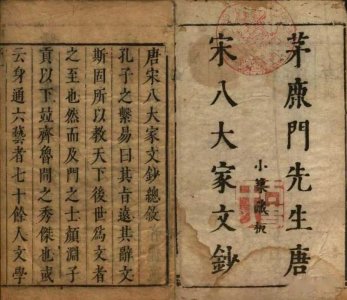 茅鹿門先生唐
宋八大家文鈔
小築藏板
唐宋八大家文鈔總敘
孔子之繫易曰其旨遠其辭文
斯固所以教天下後世為文者
之至也然而及門之士顏淵子
貢以下並齊魯間之秀傑也或
云身通六藝者七十餘人文學